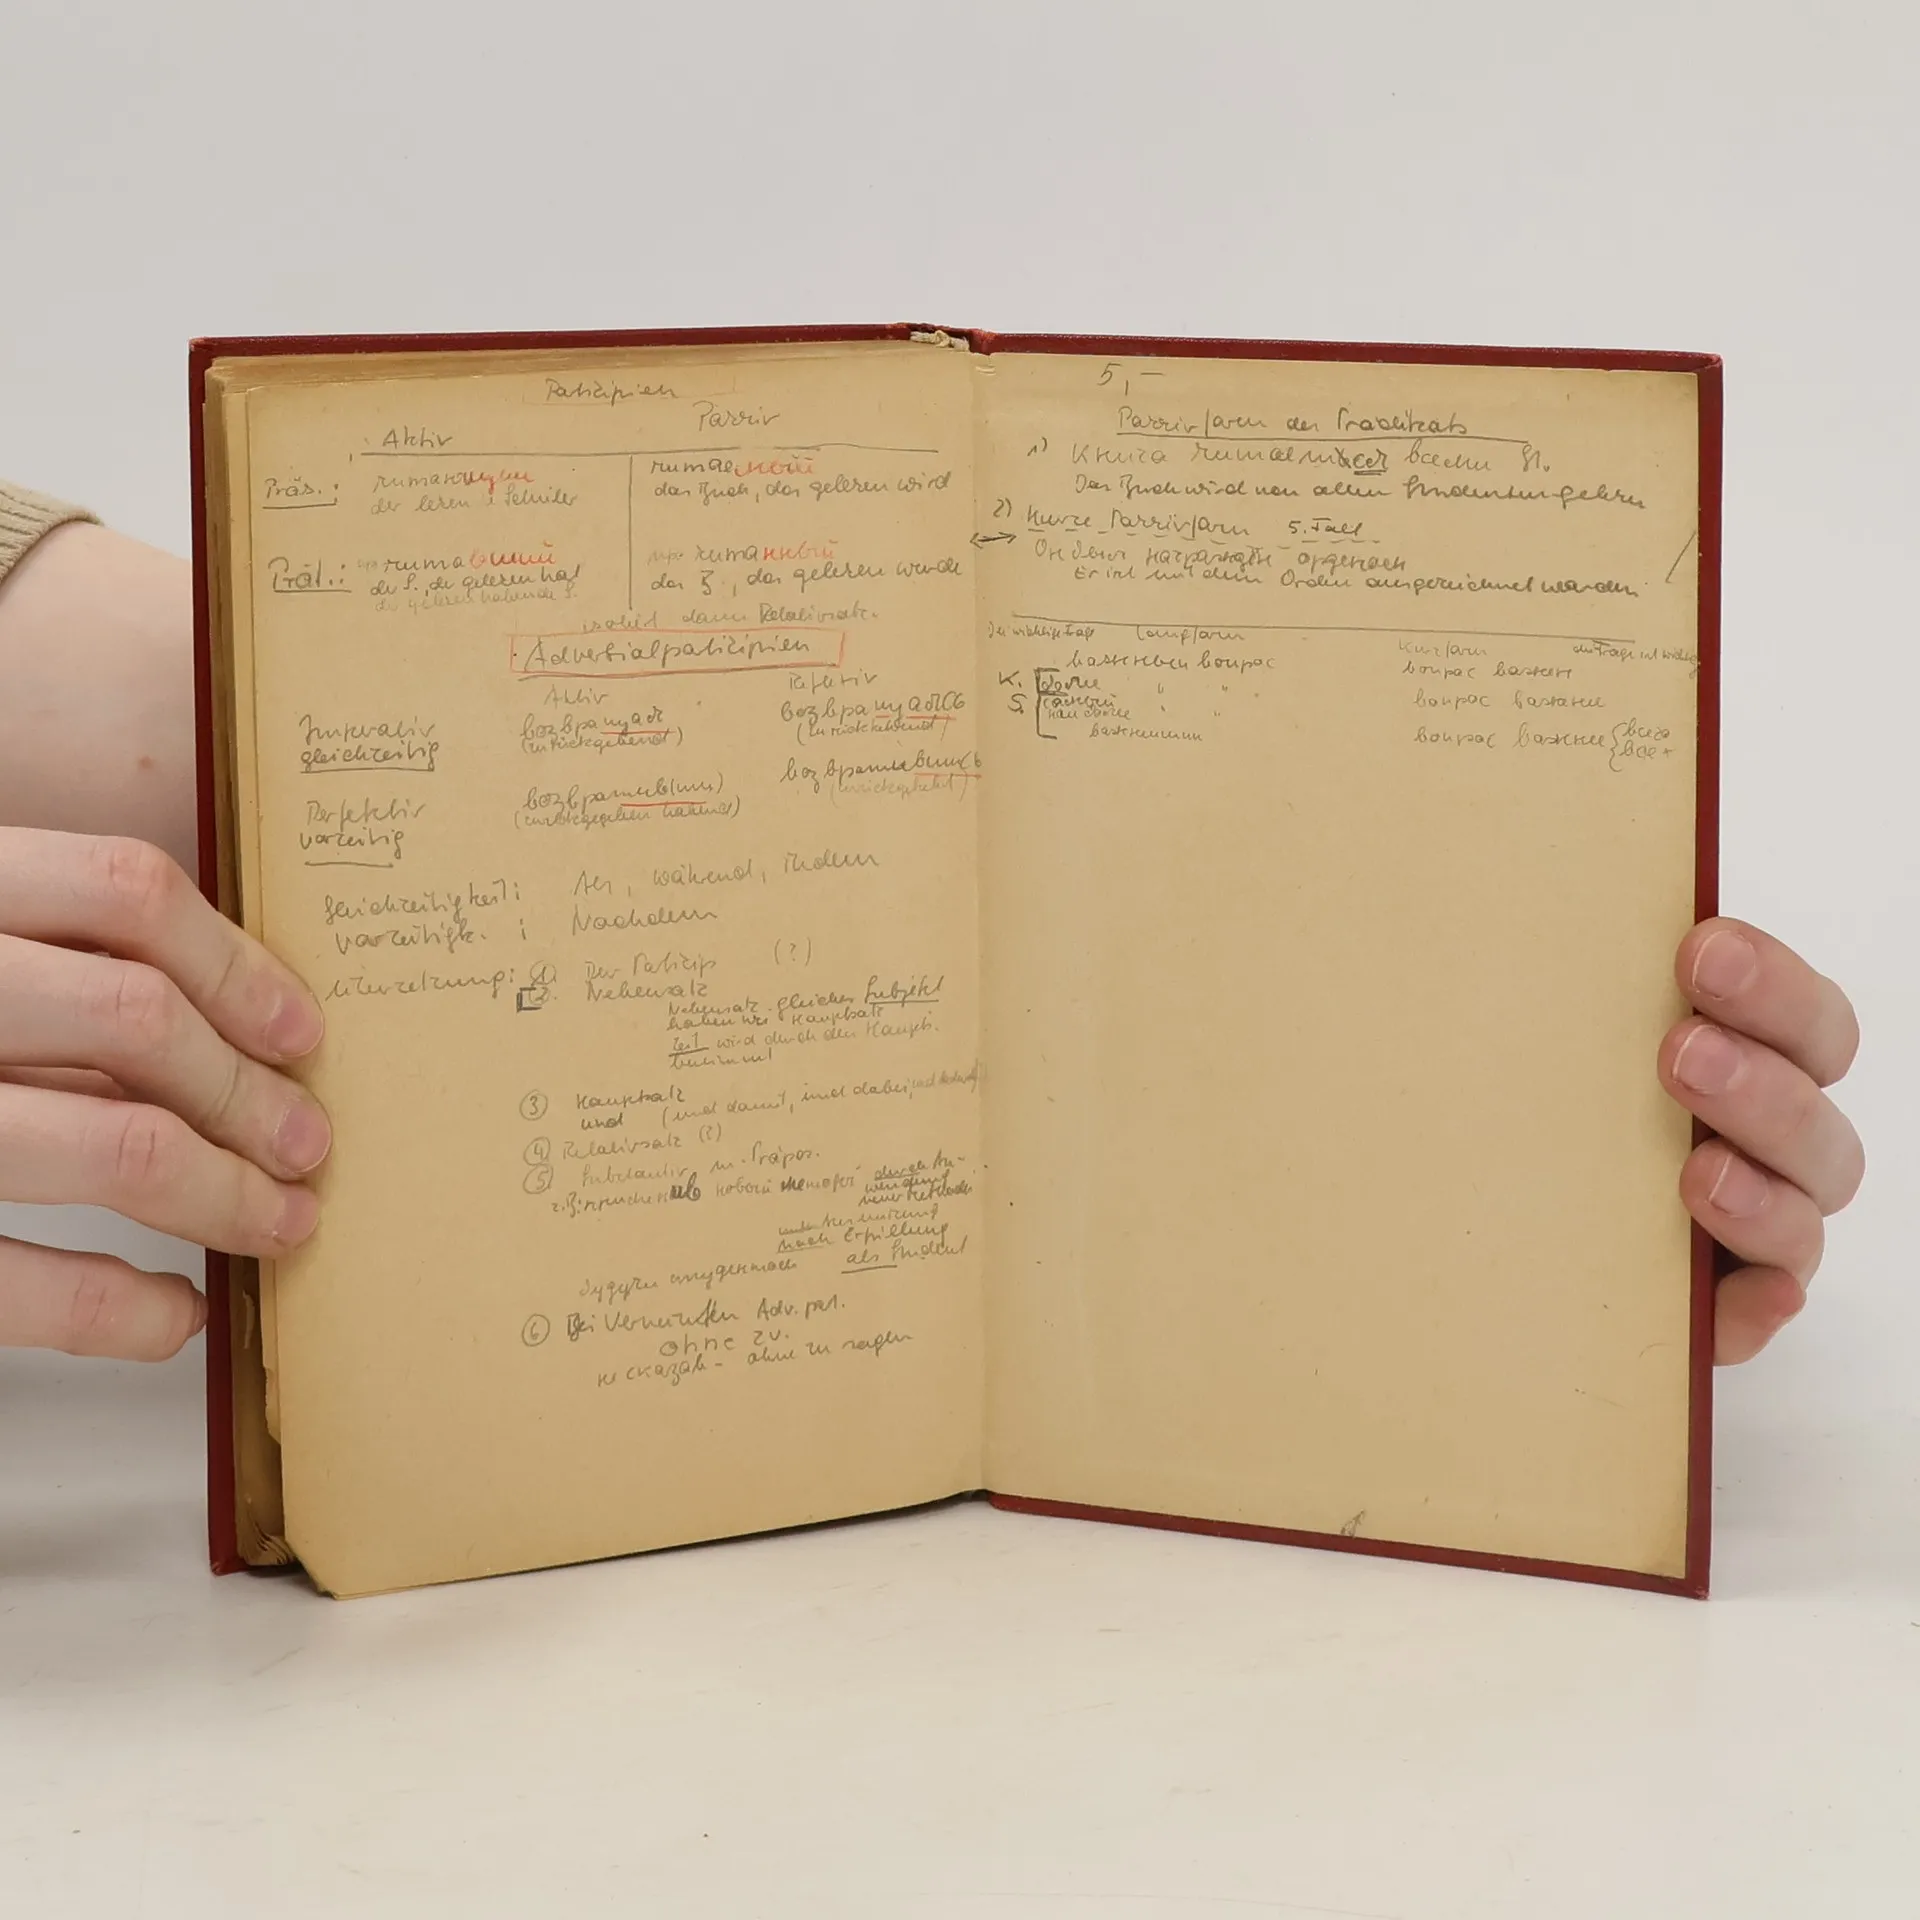 Partizipien
Aktiv Passiv
Präs.: читающий читаемый
der lesende Schüler das Buch, das gelesen wird
Prät.: про читавший про читанный
der S., der gelesen hat das B, das gelesen wurde
der gelesen habende S.
dann Relativsatz.
Adverbialpartizipien
Aktiv Reflexiv
Imperfektiv возвращая возвращаясь
gleichzeitig (zurückgebend) (zurückkehrend)
Perfektiv возвратив(ши) возвратившись
vorzeitig (zurückgegeben habend) (zurückgekehrt)
Gleichzeitigkeit: Als, während, indem
Vorzeitigk. : Nachdem
Übersetzung: 1. Der Partizip (?)
2. Nebensatz
Nebensatz gleiches Subjekt
haben wie Hauptsatz
Zeit wird durch den Haupts.
bestimmt
3 Hauptsatz
und (und damit, und dabei, und
4 Relativsatz (?)
5 Substantiv m. Präpos.
z.B. новый метод durch An-
wendung
neuer Methoden
unter Ausnutzung
nach Erfüllung
будучи студентом als Student
6 Bei Verneinten Adv. part.
ohne zu.
не сказав - ohne zu sagen
5,-
Passivform des Prädikats
1) Книга читается всеми ст.
Das Buch wird von allen Studenten gelesen
2) Kurze Passivform 5. Fall
Он был награждён орденом
Er ist mit dem Orden ausgezeichnet worden.
Die wichtige Frage Langform Kurzform die Frage ist wichtig
важный вопрос вопрос важен
K. более " " вопрос важнее
S. самый " "
наиболее
важнейший вопрос важнее всего
всех